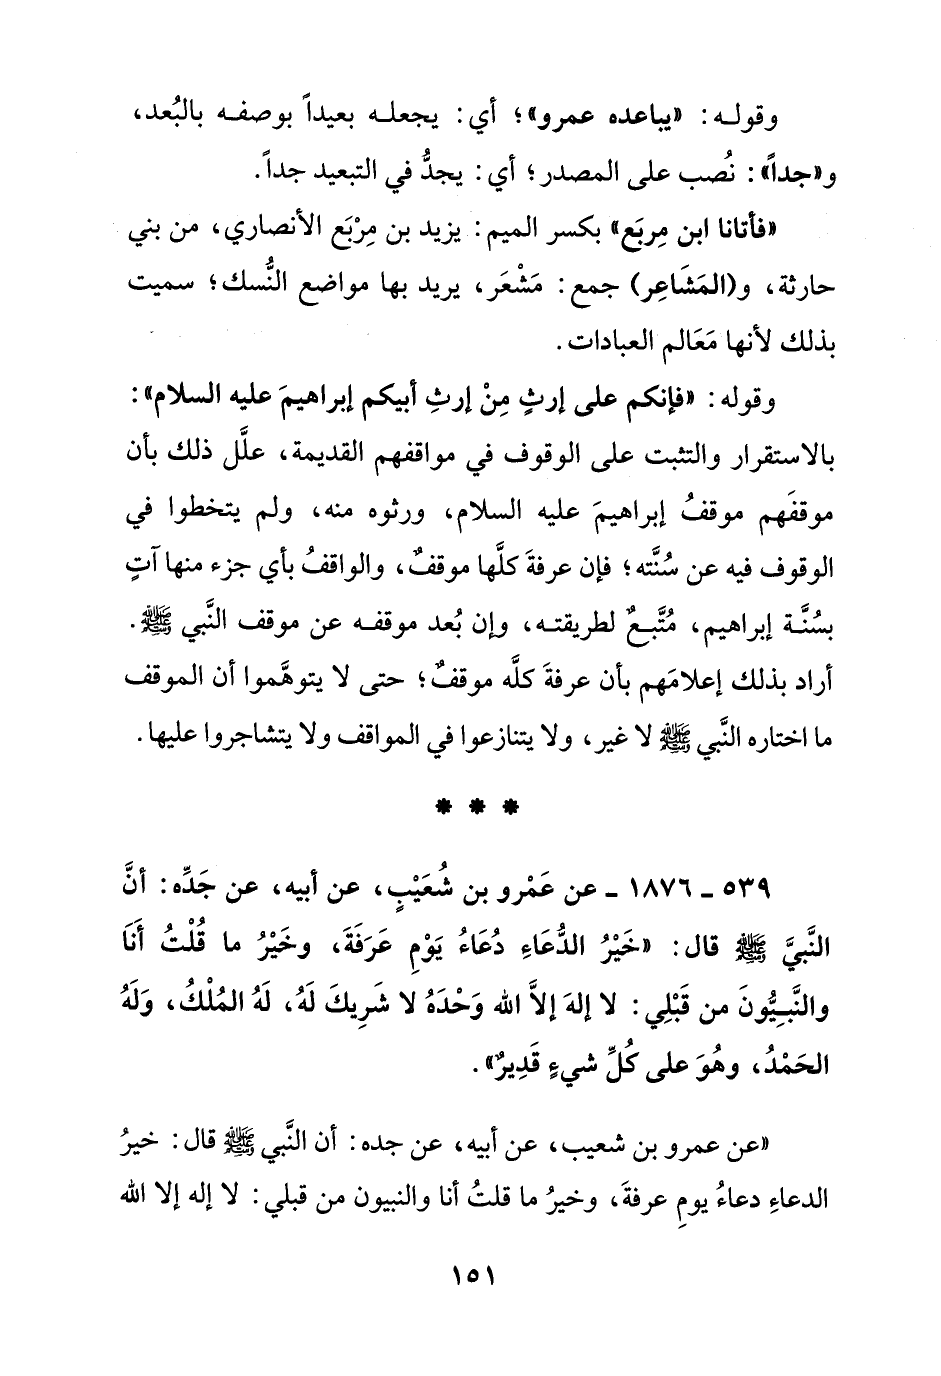 وقولـه: «يباعده عمرو»؛ أي: يجعلـه بعيداً بوصفـه بالبُعد،
و«جداً»: نُصب على المصدر؛ أي: يجدُّ في التبعيد جداً.
«فأتانا ابن مِربَع» بكسر الميم: يزيد بن مِرْبَع الأنصاري، من بني
حارثة، و(المَشَاعِر) جمع: مَشْعَر، يريد بها مواضع النُّسك؛ سميت
بذلك لأنها مَعَالم العبادات.
وقوله: «فإنكم على إرثٍ مِنْ إرثِ أبيكم إبراهيمَ عليه السلام»:
بالاستقرار والتثبت على الوقوف في مواقفهم القديمة، علَّل ذلك بأن
موقفَهم موقفُ إبراهيمَ عليه السلام، ورثوه منه، ولم يتخطوا في
الوقوف فيه عن سُنَّته؛ فإن عرفةَ كلَّها موقفٌ، والواقفُ بأي جزء منها آتٍ
بسُنَّـة إبراهيم، مُتَّبـعٌ لطريقتـه، وإن بُعد موقفـه عن موقف النَّبي ﷺ.
أراد بذلك إعلامَهم بأن عرفةَ كلَّه موقفٌ؛ حتى لا يتوهَّموا أن الموقف
ما اختاره النَّبي ﷺ لا غير، ولا يتنازعوا في المواقف ولا يتشاجروا عليها.
* * *
٥٣٩ ـ ١٨٧٦ ـ عن عَمْرو بن شُعَيْبٍ، عن أبيه، عن جَدِّه: أنَّ
النَّبيَّ ﷺ قال: «خَيْرُ الدُّعَاءِ دُعَاءُ يَوْمِ عَرَفَةَ، وخَيْرُ ما قُلْتُ أَنَا
والنَّبِيُّونَ من قَبْلِي: لا إلهَ إلاَّ الله وَحْدَهُ لا شَرِيكَ لَهُ، لَهُ المُلْكُ، وَلَهُ
الحَمْدُ، وهُوَ على كُلِّ شيءٍ قَدِيرٌ».
«عن عمرو بن شعيب، عن أبيه، عن جده: أن النَّبي ﷺ قال: خيرُ
الدعاءِ دعاءُ يومِ عرفةَ، وخيرُ ما قلتُ أنا والنبيون من قبلي: لا إله إلا الله
١٥١